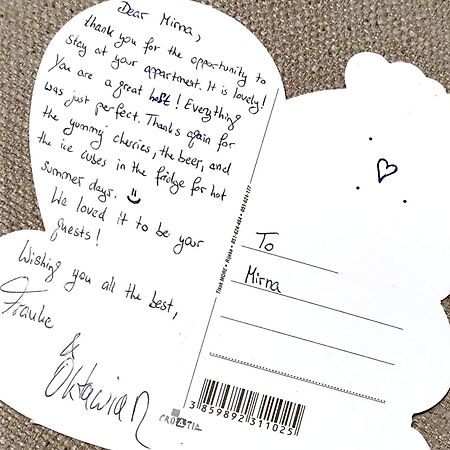 Dear Mirna,
thank you for the opportunity to
stay at your appartment. It is lovely!
You are a great host! Everything
was just perfect. Thanks again for
the yummy cherries, the beer, and
the ice cubes in the fridge for hot
summer days.
We loved it to be your
guests!
Wishing you all the best,
Frauke
&
Oktawian
To
Mirna
Tisak MOHE • Rijeka • 051-624-404 • 051-624-177
CROATIA
3 859892 311025